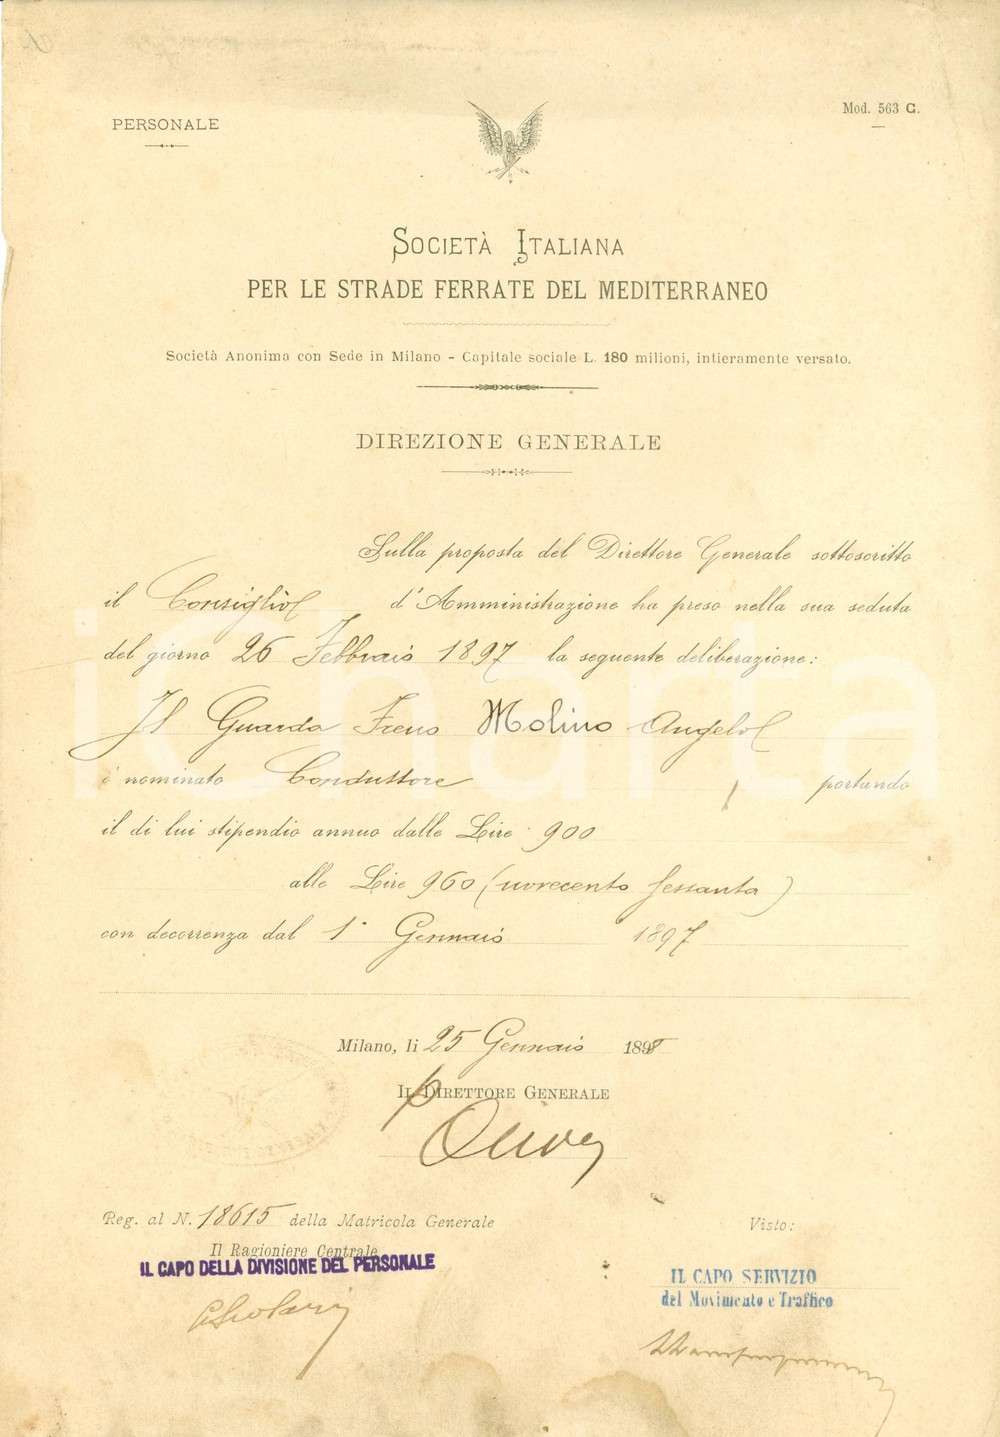 PERSONALE
Mod. 563 G.
SOCIETÀ ITALIANA
PER LE STRADE FERRATE DEL MEDITERRANEO
Società Anonima con Sede in Milano - Capitale sociale L. 180 milioni, intieramente versato.
DIREZIONE GENERALE
Sulla proposta del Direttore Generale sottoscritto
il Consiglio d'Amministrazione ha preso nella sua seduta
del giorno 26 Febbraio 1897 la seguente deliberazione:
Il Guarda Freno Molino Angelo
è nominato Conduttore portando
il di lui stipendio annuo dalle Lire 900
alle Lire 960 (novecento sessanta)
con decorrenza dal 1° Gennaio 1897
Milano, li 25 Gennaio 1898
IL DIRETTORE GENERALE
Reg. al N. 18615 della Matricola Generale
Visto:
Il Ragioniere Centrale
IL CAPO DELLA DIVISIONE DEL PERSONALE
IL CAPO SERVIZIO
del Movimento e Traffico